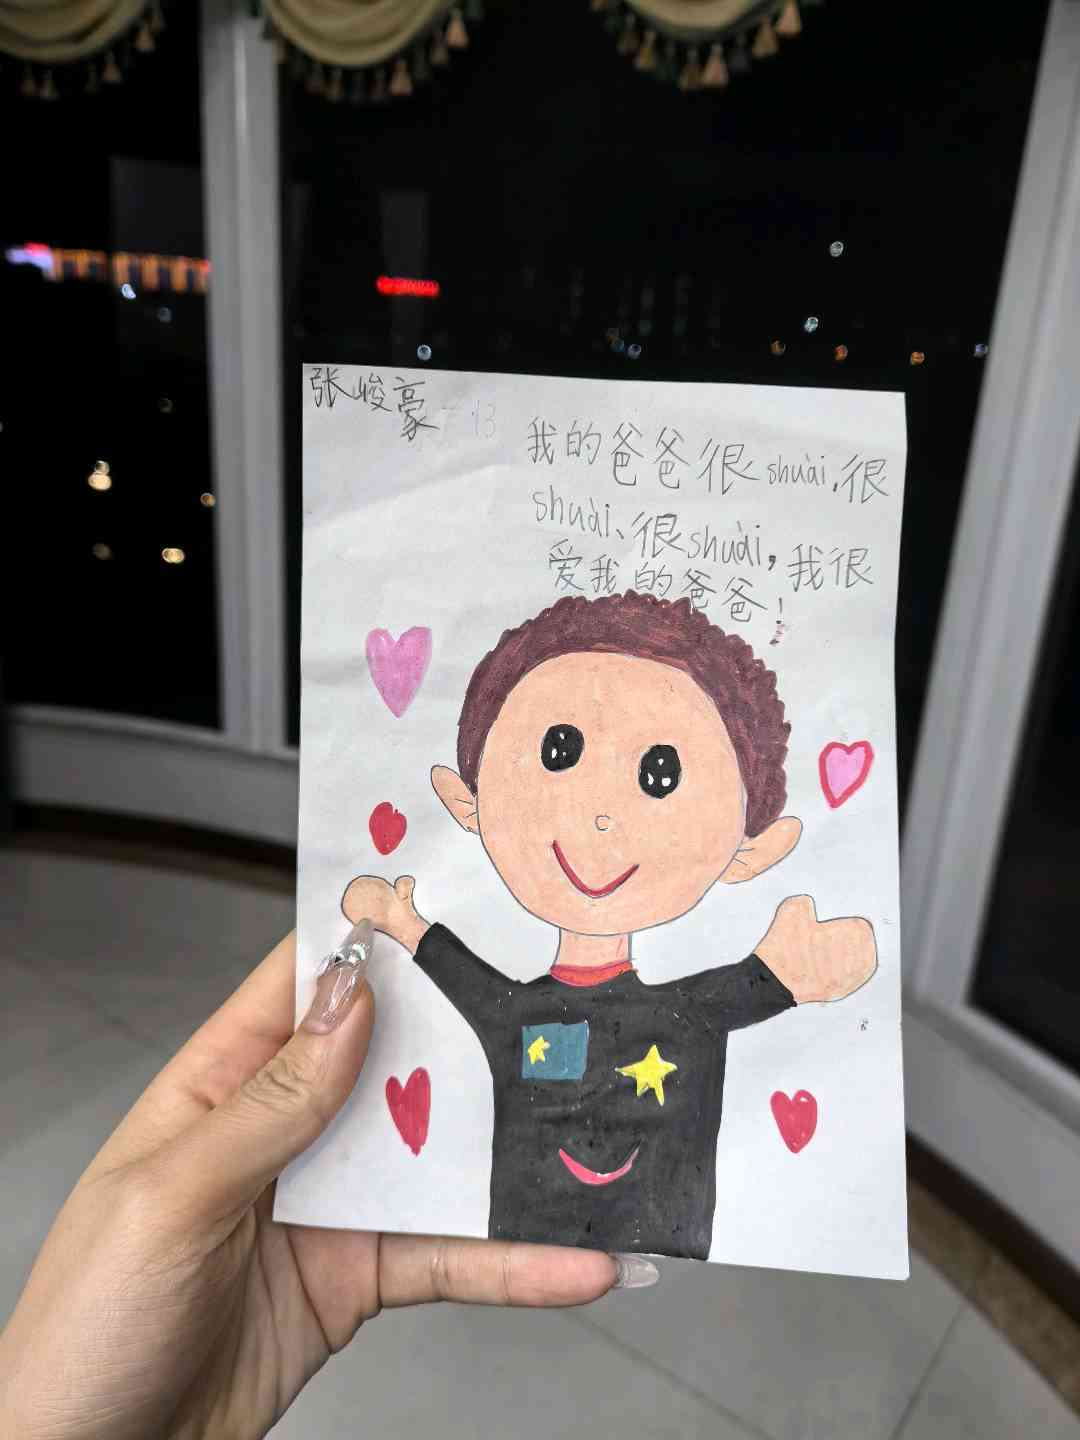 张峻豪
13
我的爸爸很shuài,很
shuài、很shuài,我很
爱我的爸爸!